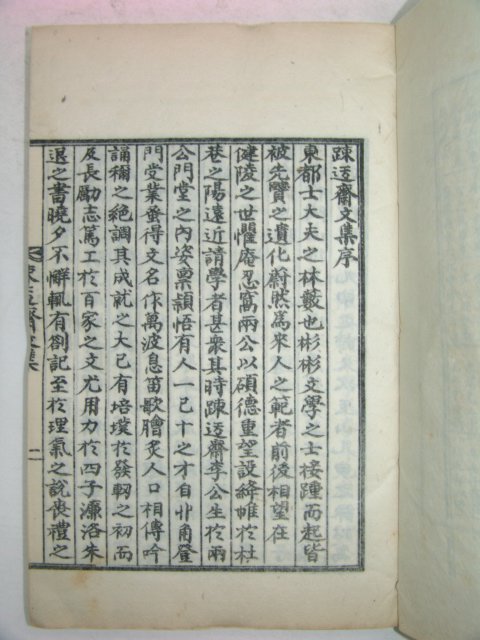 踈迃齋文集序
東都士大夫之林藪也彬彬文學之士接踵而起皆
被先贒之遺化蔚然為來人之範者前後相望在
健陵之世懼庵忍窩兩公以碩德重望設絳帷於杜
巷之陽遠近請學者甚衆其時踈迃齋李公生於兩
公門堂之內姿禀穎悟有人一己十之才自丱角登
門受業蚤得文名作萬波息笛歌膾炙人口相傳吟
誦稱之絶調其成就之大已有培墣於發軔之初而
及長勵志篤工於百家之文尤用力於四子濂洛朱
退之書曉夕不懈輒有劄記至於理氣之說喪禮之